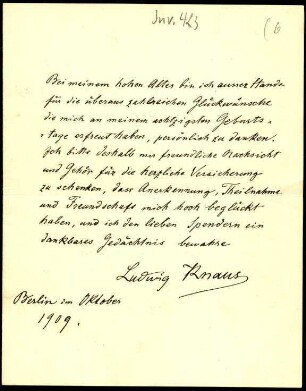 Inv. 423
(6
Bei meinem hohen Alter bin ich ausser Stande
für die überaus zahlreichen Glückwünsche
die mich an meinem achtzigsten Geburts-
tage erfreut haben, persönlich zu danken.
Ich bitte deshalb um freundliche Nachsicht
und Gehör für die herzliche Versicherung
zu schenken, dass Anerkennung, Theilnahme
und Freundschaft mich hoch beglückt
haben, und ich den lieben Spendern ein
dankbares Gedächtnis bewahre
Ludwig Knaus
Berlin im Oktober
1909.